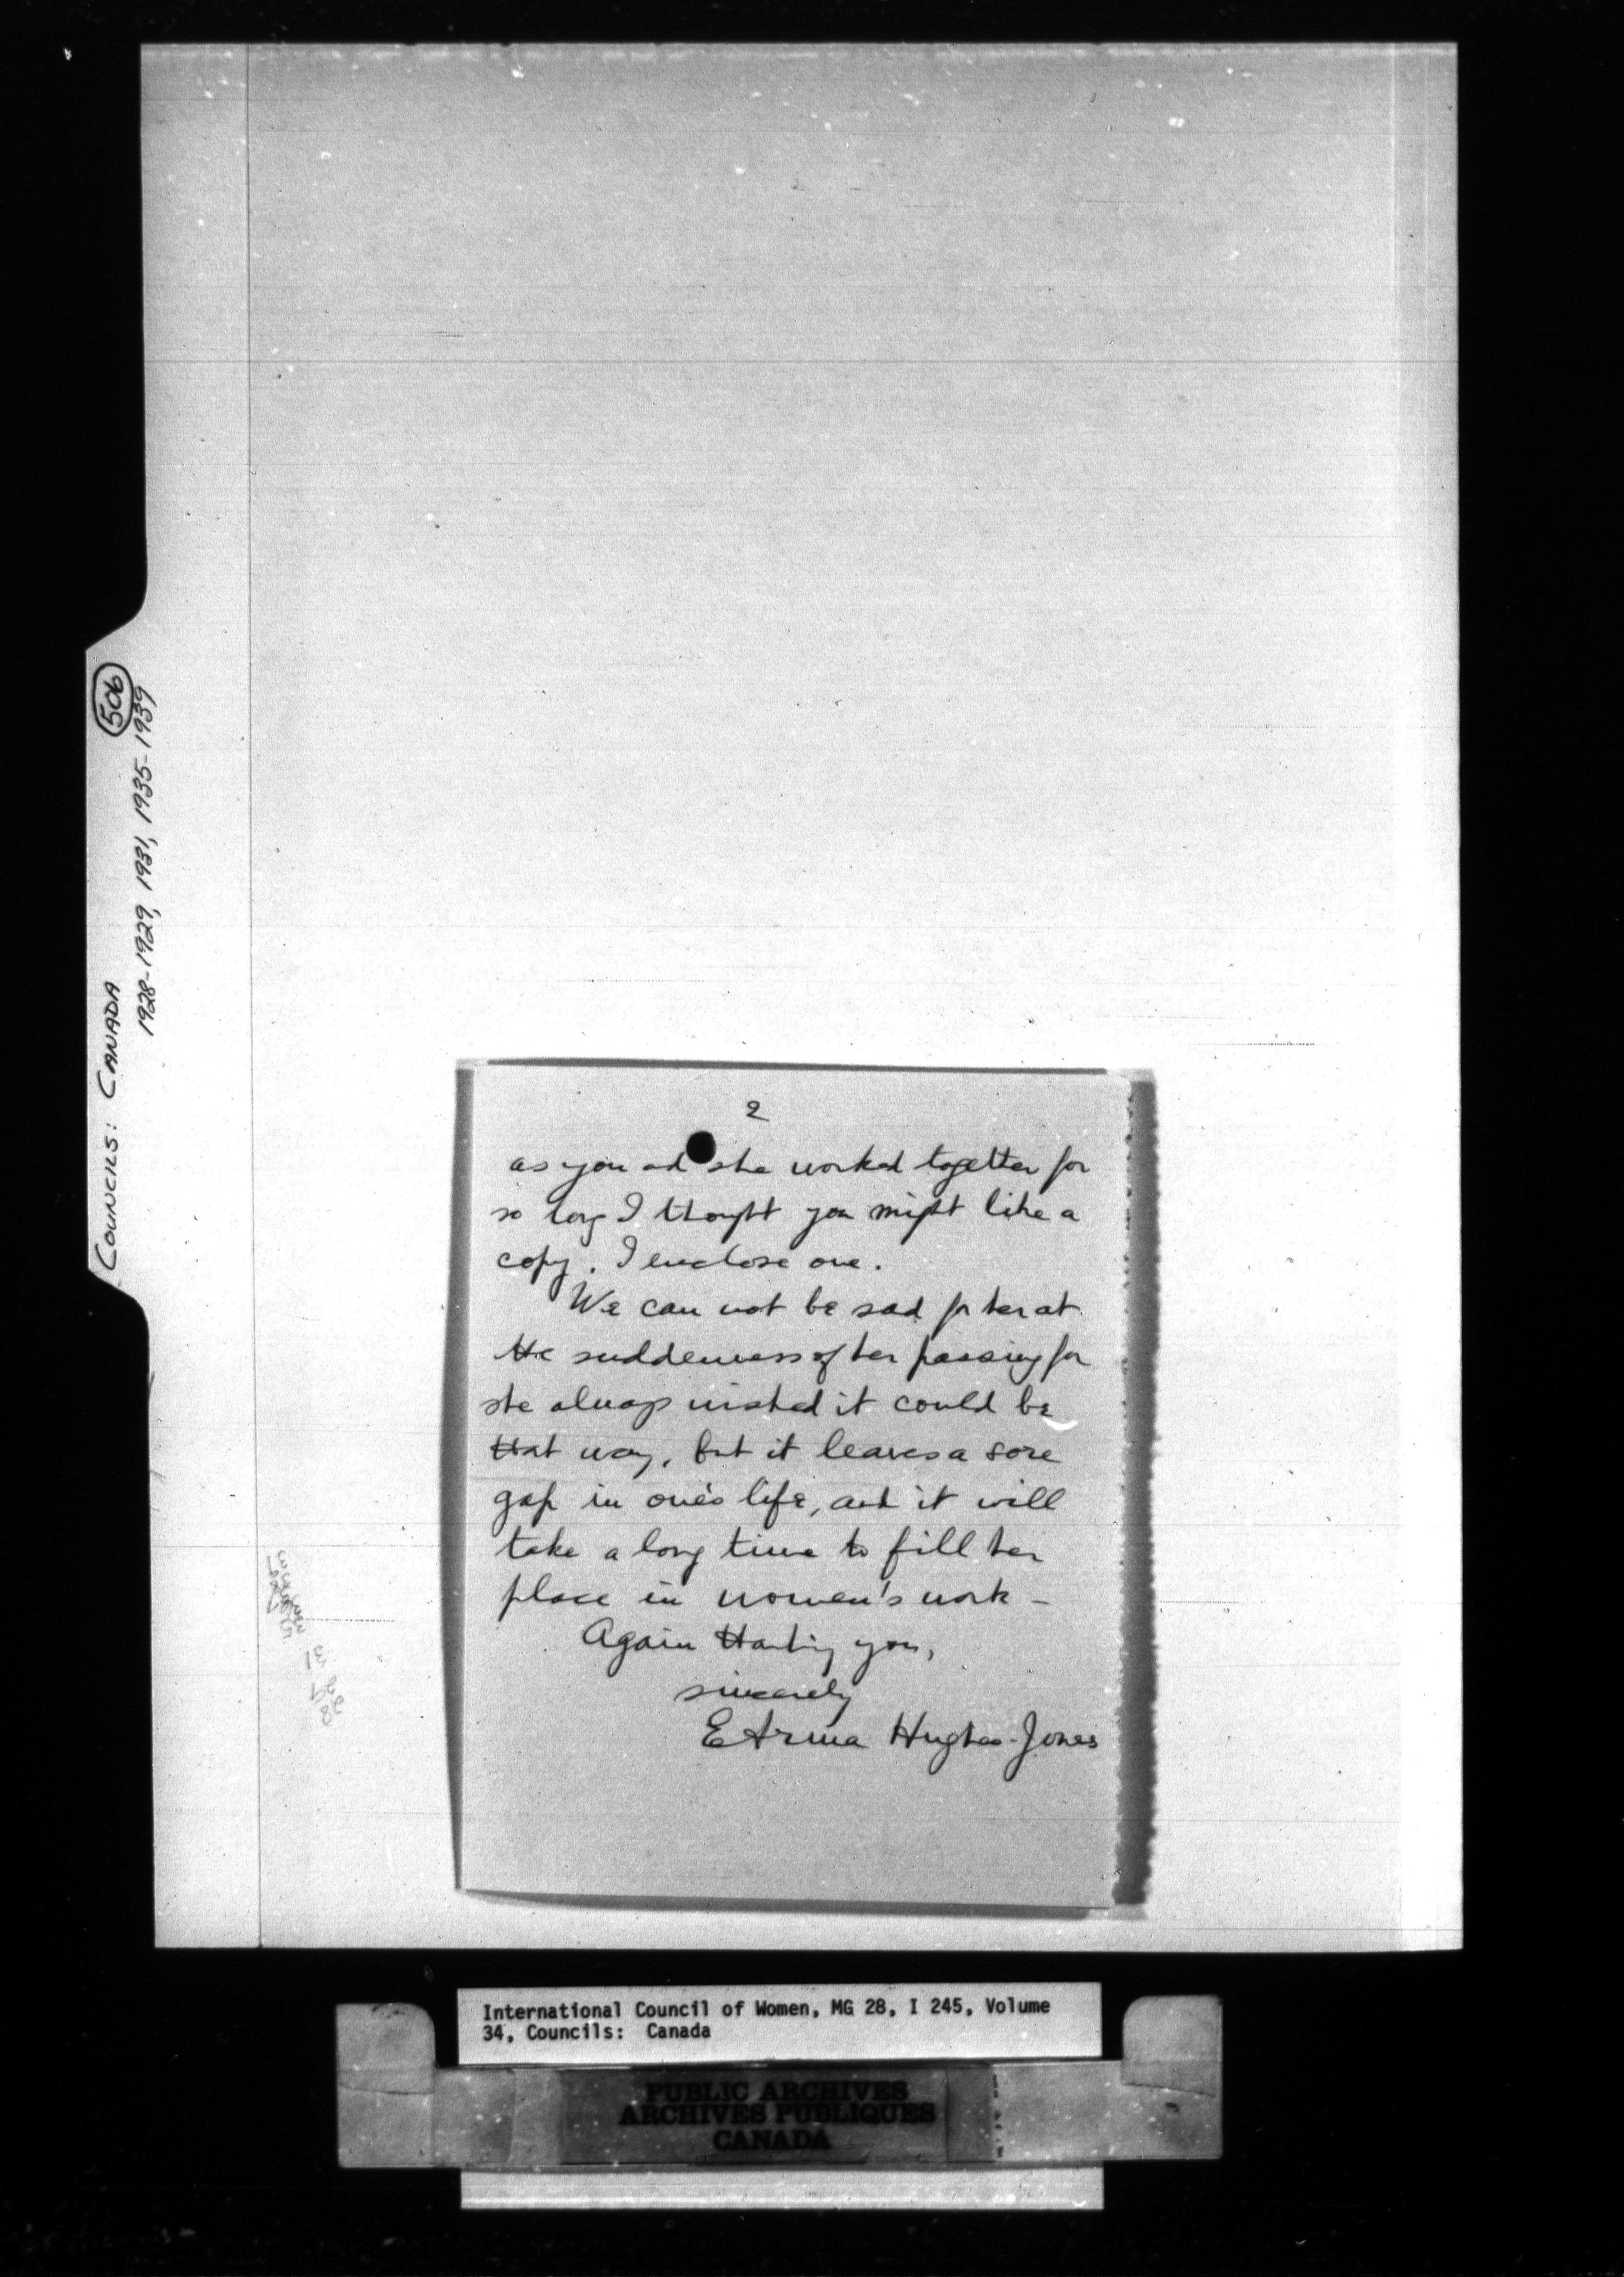 COUNCILS: CANADA
506
1928-1929, 1931, 1935-1939
2
as you and she worked together for
so long I thought you might like a
copy. I enclose one.
We can not be sad for her at
the suddenness of her passing for
she always wished it could be
that way, but it leaves a sore
gap in one's life, and it will
take a long time to fill her
place in women's work –
Again thanking you,
sincerely
Hughes-Jones
International Council of Women, MG 28, I 245, Volume
34, Councils: Canada
PUBLIC ARCHIVES
ARCHIVES PUBLIQUES
CANADA